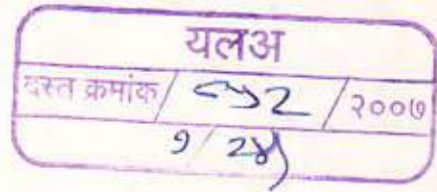 यलअ
दस्त क्रमांक / / २००७
१ / २४